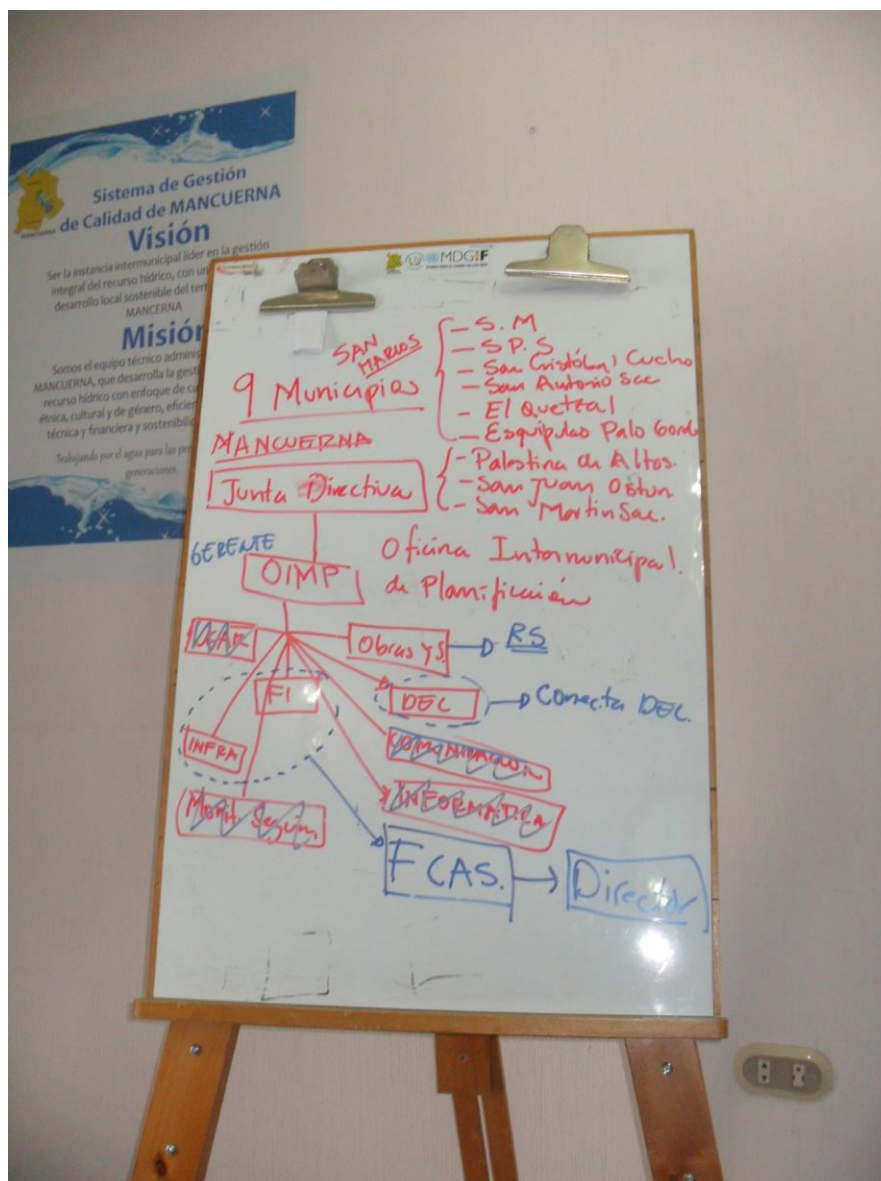 Sistema de Gestión
de Calidad de MANCUERNA
Visión
Ser la instancia intermunicipal líder en la gestión
integral del recurso hídrico, con un
desarrollo local sostenible del
MANCERNA
Misión
Somos el equipo técnico
MANCUERNA, que desarrolla la
recurso hídrico con enfoque de
étnica, cultural y de género,
técnica y financiera y
Trabajando por el agua para las
generaciones
MDGIF
SAN
MARCOS
9 Municipios
- S. M
- S P. S
- San Cristóbal Cucho
- San Antonio Sac
- El Quetzal
- Esquipulas Palo Gordo
MANCUERNA
- Palestina de Altos.
- San Juan Ostun
- San Martin Sac.
Junta Directiva
GERENTE
OIMP
Oficina Intermunicipal.
de Planificación
Obras y S.
RS
FI
DEC
Conecta DEC.
INFRA
COMUNICACION
INFORMATICA
Monit. Seguim.
FCAS.
Director